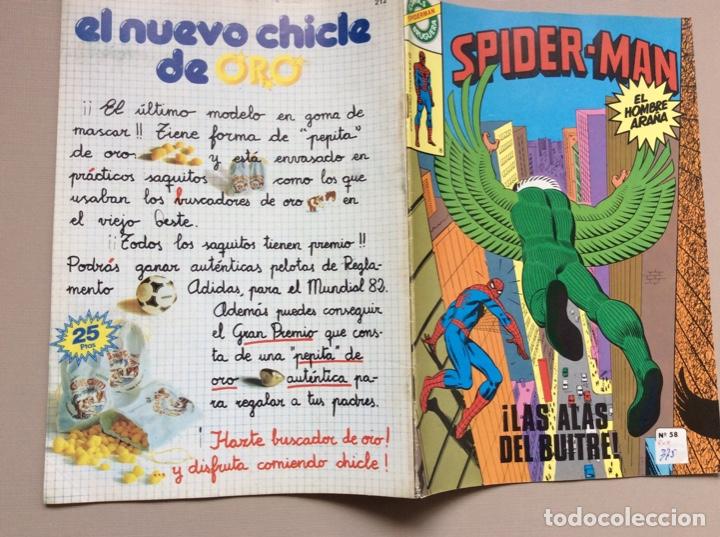 212
el nuevo chicle
de ORO
¡¡ El último modelo en goma de
mascar!! Tiene forma de "pepita"
de oro y está envasado en
prácticos saquitos como los que
usaban los buscadores de oro en
el viejo Oeste.
¡¡Todos los saquitos tienen premio!!
Podrás ganar auténticas pelotas de Regla-
mento Adidas, para el Mundial 82.
Además puedes conseguir
el Gran Premio que cons-
ta de una "pepita" de
oro auténtica pa-
ra regalar a tus padres.
25
Ptas
¡Hazte buscador de oro!
... y disfruta comiendo chicle!
SPIDERMAN
BRUGUERA
SPIDER-MAN
EL
HOMBRE
ARAÑA
¡LAS ALAS
DEL BUITRE!
Nº 58
375
todocoleccion